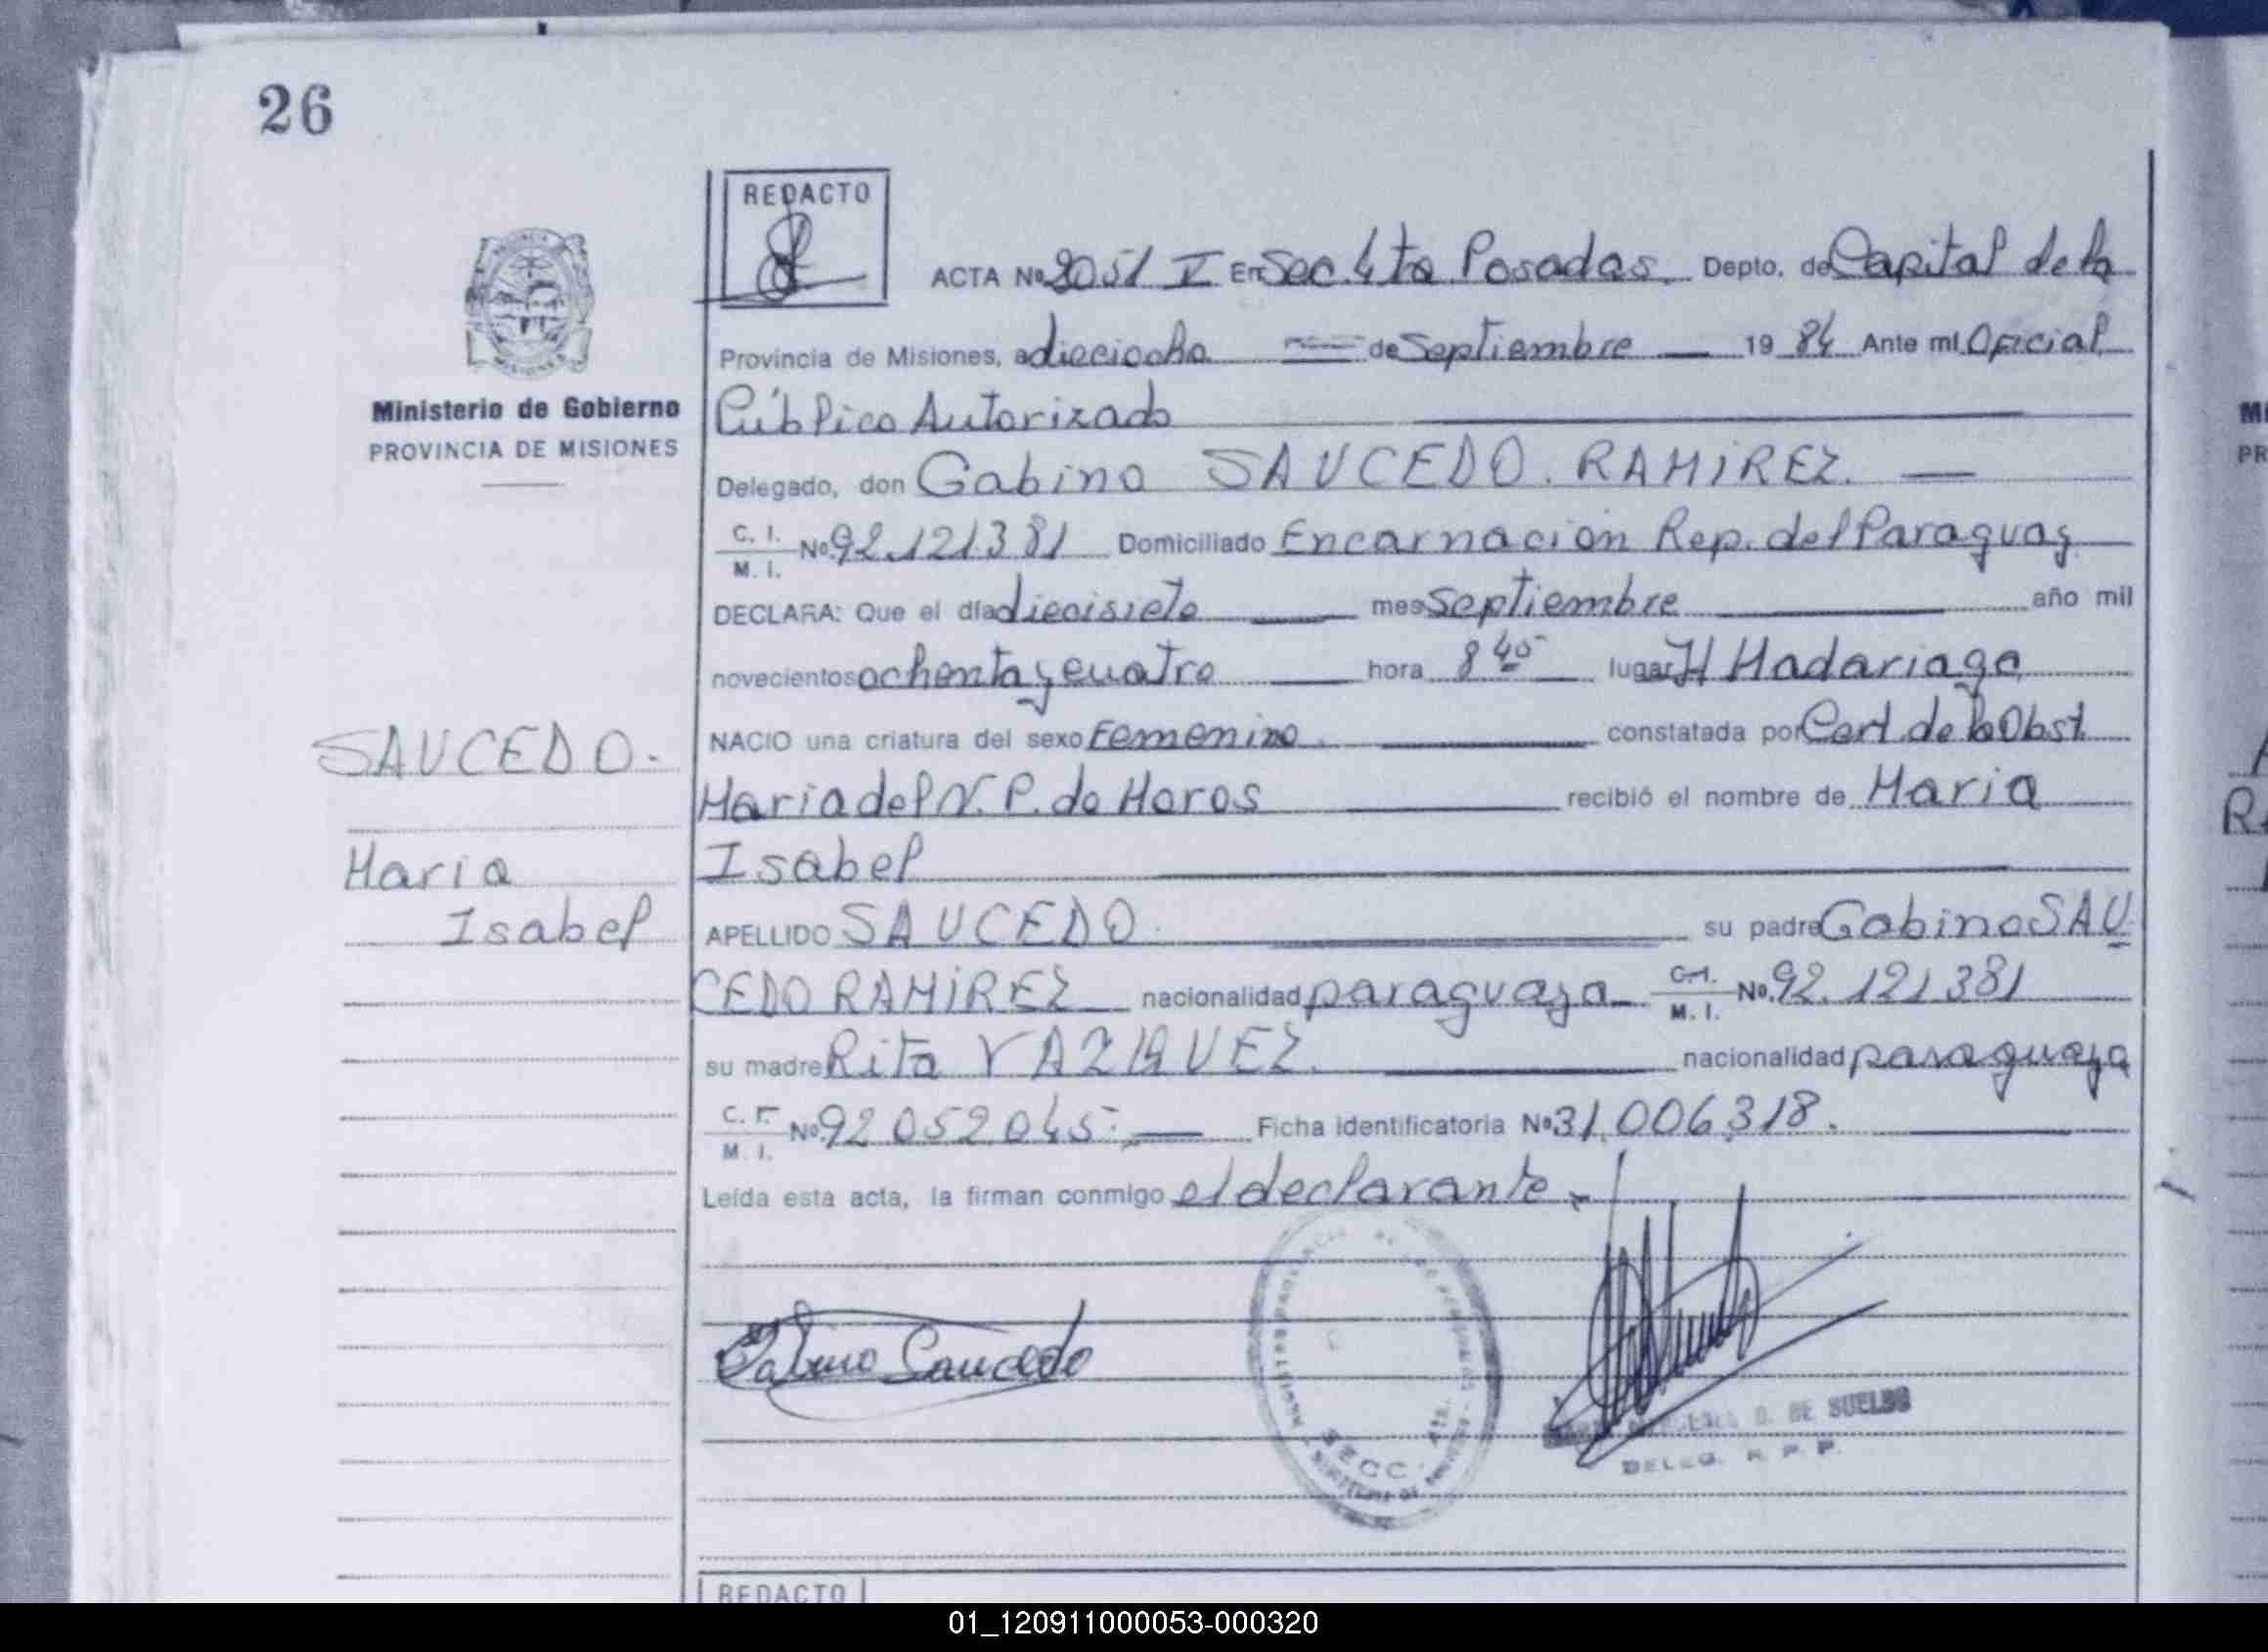 26
REDACTO
ACTA No 2051 V En Sec. 4ta Posadas. Depto. de Capital de la
Provincia de Misiones, a dieciocho de Septiembre 19 84 Ante mi Oficial
Ministerio de Gobierno
PROVINCIA DE MISIONES
Público Autorizado
Delegado, don Gabino SAUCEDO. RAMIREZ.
C. I.
M. I. No 92.121.381 Domiciliado Encarnación Rep. del Paraguay
DECLARA: Que el día diecisiete mes Septiembre año mil
novecientos ochenta y cuatro hora 8 40 lugar H Madariaga
NACIO una criatura del sexo Femenino. constatada por Cert. de la Obst.
Maria del N. P. de Moros recibió el nombre de Maria
Isabel
SAUCEDO.
Maria
Isabel
APELLIDO SAUCEDO. su padre Gabino SAU
CEDO RAMIREZ nacionalidad paraguaya C. I. M. I. No. 92.121.381
su madre Rita VAZQUEZ. nacionalidad paraguaya
C. I.
M. I. No. 92.052.045.- Ficha identificatoria No 31.006.318.
Leída esta acta, la firman conmigo el declarante.
Gabino Saucedo
SECC.
D. DE SUELDO
DELEG. R. P. P.
REDACTO
01_120911000053-000320